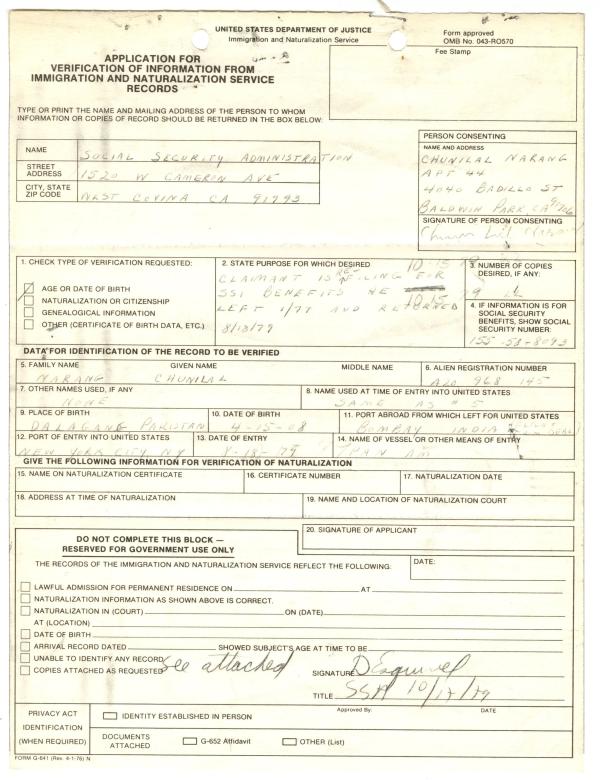 UNITED STATES DEPARTMENT OF JUSTICE
Immigration and Naturalization Service
Form approved
OMB No. 043-RO570
APPLICATION FOR
VERIFICATION OF INFORMATION FROM
IMMIGRATION AND NATURALIZATION SERVICE
RECORDS
Fee Stamp
TYPE OR PRINT THE NAME AND MAILING ADDRESS OF THE PERSON TO WHOM
INFORMATION OR COPIES OF RECORD SHOULD BE RETURNED IN THE BOX BELOW:
NAME SOCIAL SECURITY ADMINISTRATION
STREET ADDRESS 1520 W CAMERON AVE
CITY, STATE ZIP CODE WEST COVINA CA 91793
PERSON CONSENTING
NAME AND ADDRESS
CHUNILAL NARANG
APT 44
4040 BADILLO ST
BALDWIN PARK, CA 91706
SIGNATURE OF PERSON CONSENTING
1. CHECK TYPE OF VERIFICATION REQUESTED:
AGE OR DATE OF BIRTH
NATURALIZATION OR CITIZENSHIP
GENEALOGICAL INFORMATION
OTHER (CERTIFICATE OF BIRTH DATA, ETC.)
2. STATE PURPOSE FOR WHICH DESIRED 10-15
CLAIMANT IS RE-FILING FOR
SSI BENEFITS HE
LEFT 1/71 AND RETURNED 10-15
8/18/79
3. NUMBER OF COPIES DESIRED, IF ANY:
4. IF INFORMATION IS FOR SOCIAL SECURITY BENEFITS, SHOW SOCIAL SECURITY NUMBER:
155-58-8093
DATA FOR IDENTIFICATION OF THE RECORD TO BE VERIFIED
5. FAMILY NAME GIVEN NAME MIDDLE NAME
NARANG CHUNILAL
6. ALIEN REGISTRATION NUMBER
A20 968 145
7. OTHER NAMES USED, IF ANY
NONE
8. NAME USED AT TIME OF ENTRY INTO UNITED STATES
SAME AS # 5
9. PLACE OF BIRTH
DALAGANG PAKISTAN
10. DATE OF BIRTH
4-15-08
11. PORT ABROAD FROM WHICH LEFT FOR UNITED STATES
BOMBAY INDIA
12. PORT OF ENTRY INTO UNITED STATES
NEW YORK CITY NY
13. DATE OF ENTRY
8-18-79
14. NAME OF VESSEL OR OTHER MEANS OF ENTRY
PAN AM
GIVE THE FOLLOWING INFORMATION FOR VERIFICATION OF NATURALIZATION
15. NAME ON NATURALIZATION CERTIFICATE
16. CERTIFICATE NUMBER
17. NATURALIZATION DATE
18. ADDRESS AT TIME OF NATURALIZATION
19. NAME AND LOCATION OF NATURALIZATION COURT
DO NOT COMPLETE THIS BLOCK —
RESERVED FOR GOVERNMENT USE ONLY
20. SIGNATURE OF APPLICANT
THE RECORDS OF THE IMMIGRATION AND NATURALIZATION SERVICE REFLECT THE FOLLOWING:
DATE:
LAWFUL ADMISSION FOR PERMANENT RESIDENCE ON AT
NATURALIZATION INFORMATION AS SHOWN ABOVE IS CORRECT.
NATURALIZATION IN (COURT) ON (DATE)
AT (LOCATION)
DATE OF BIRTH
ARRIVAL RECORD DATED SHOWED SUBJECT'S AGE AT TIME TO BE
UNABLE TO IDENTIFY ANY RECORD
COPIES ATTACHED AS REQUESTED See attached
SIGNATURE D Esquivel
TITLE SSA 10/17/79
Approved By: DATE
PRIVACY ACT
IDENTIFICATION
(WHEN REQUIRED)
IDENTITY ESTABLISHED IN PERSON
DOCUMENTS ATTACHED
G-652 Affidavit
OTHER (List)
FORM G-641 (Rev. 4-1-76) N